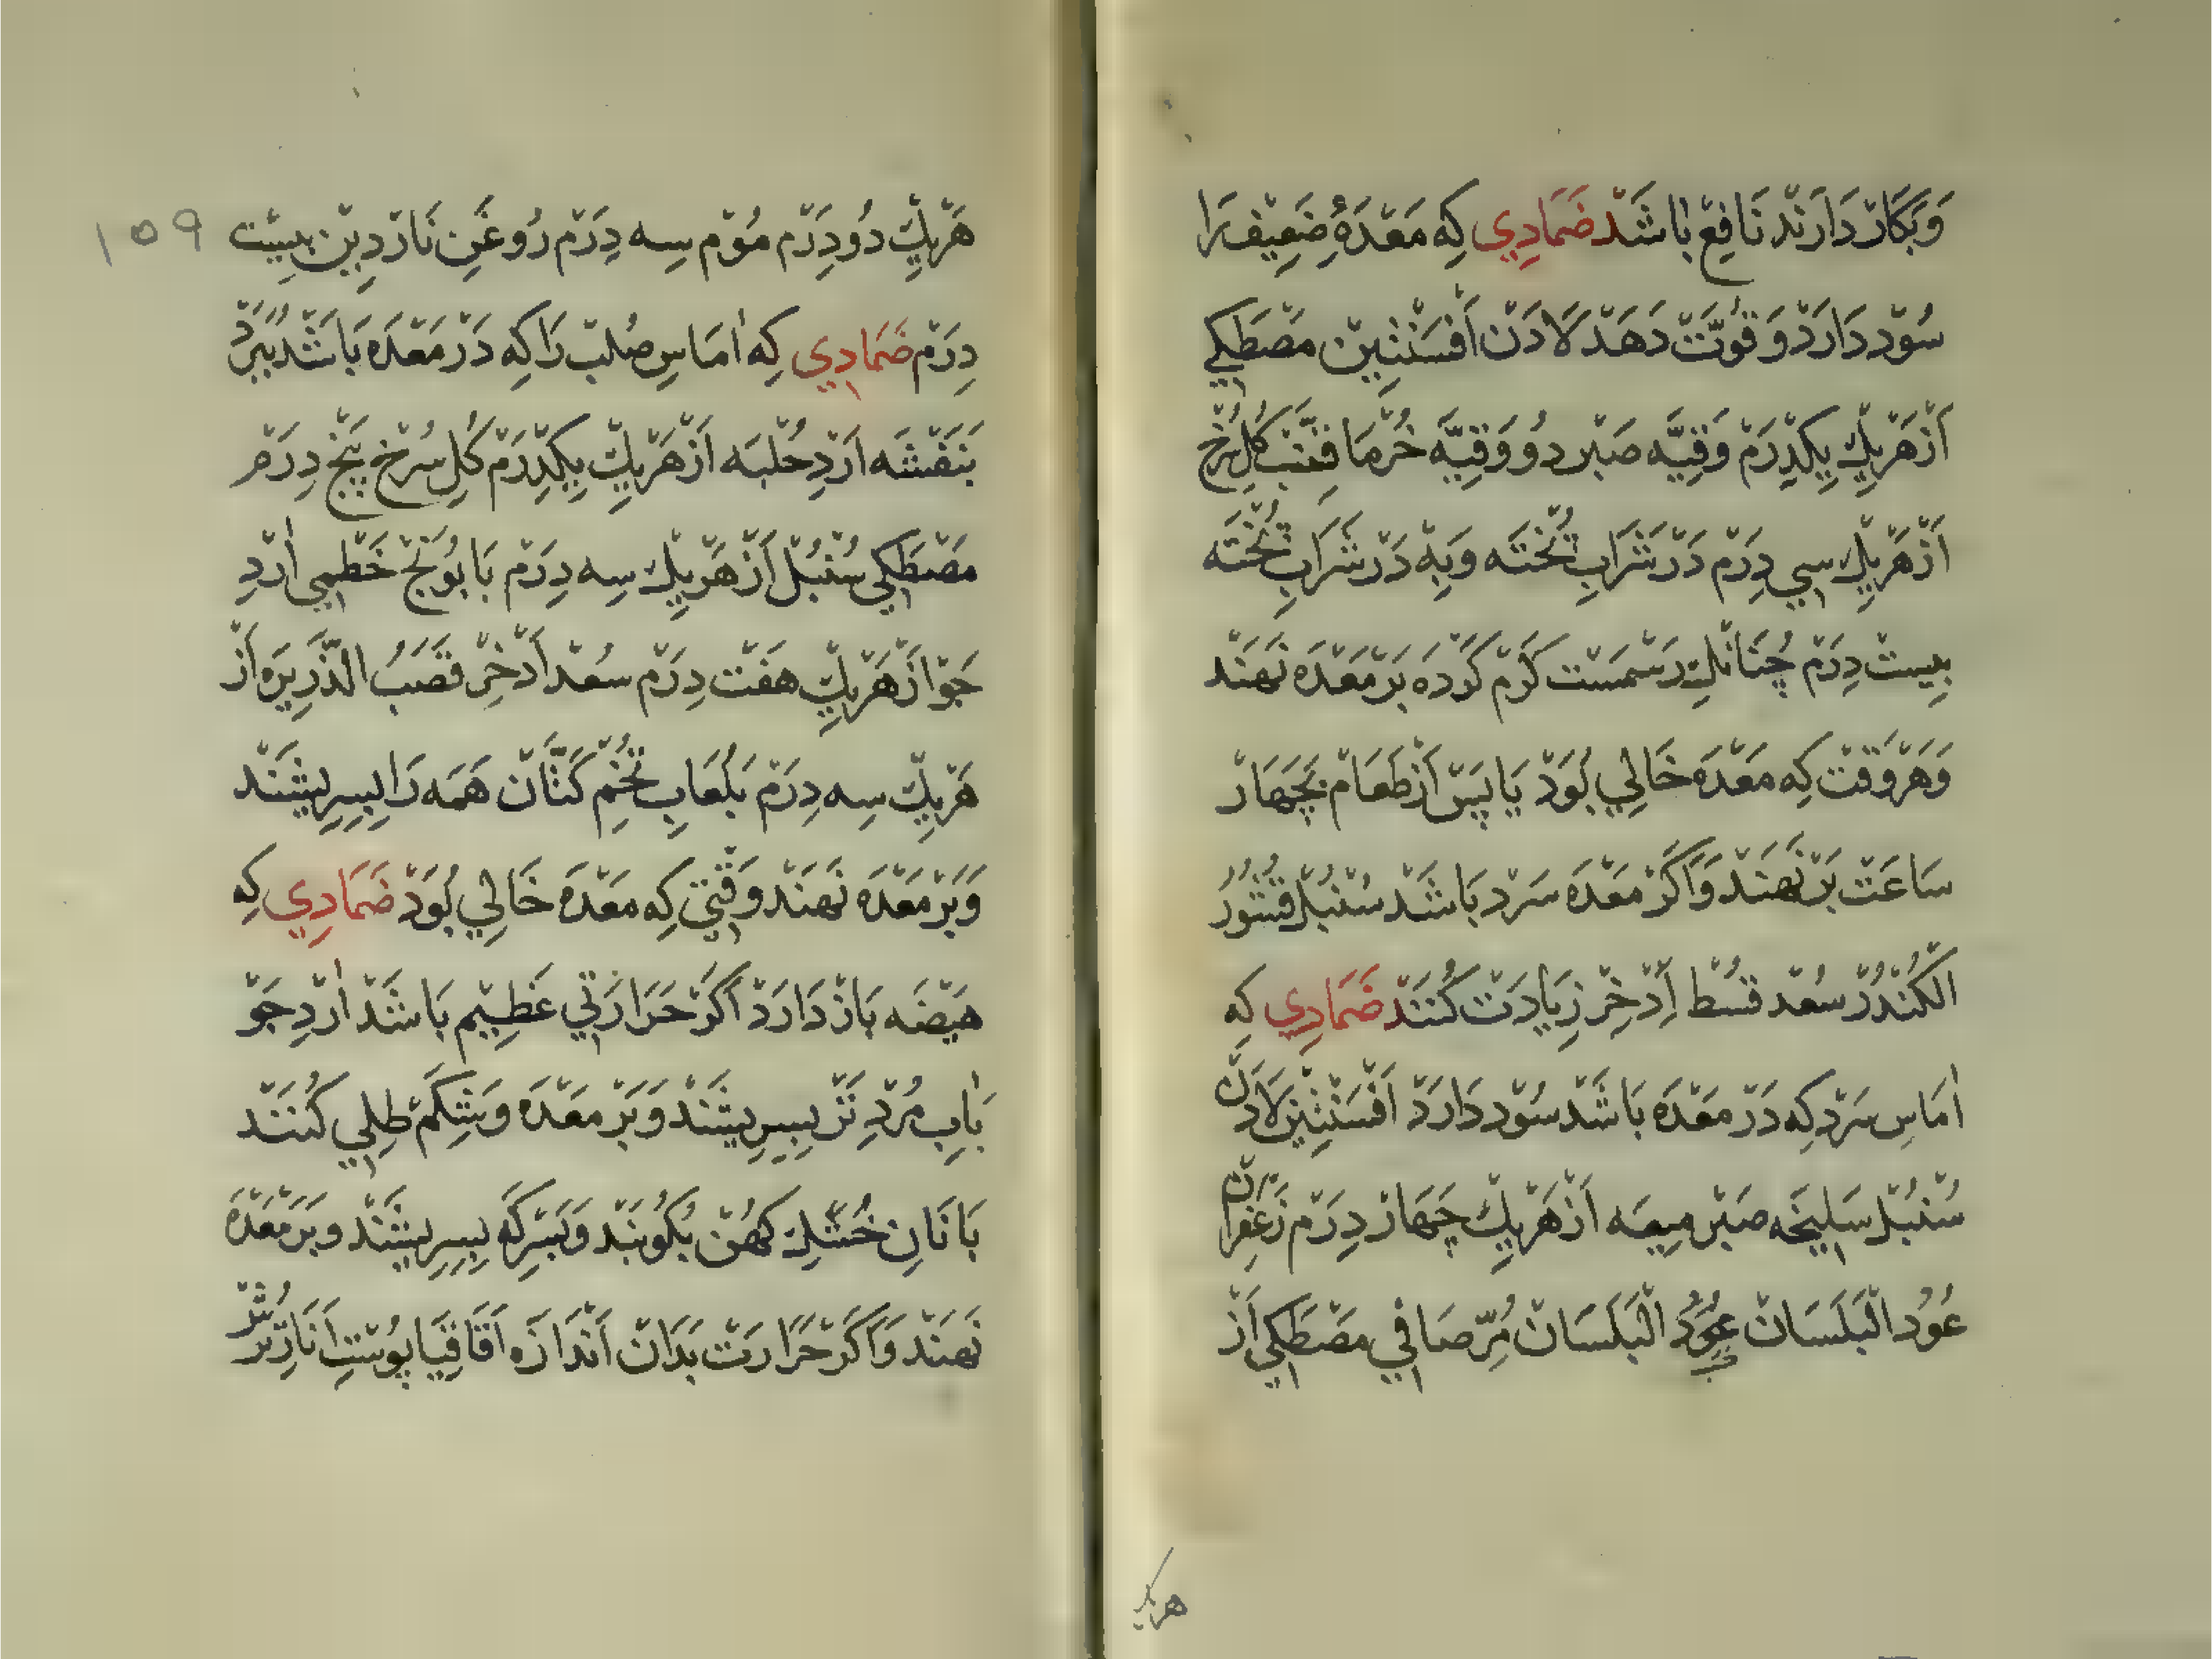 وَبَكَارْ دَارَنْدْ نَافِعْ بٰاشَدْ ضَمَادِي كِه مَعْدَهٔ ضَعِيْف رَا
سُوْد دَارَدْ وَقُوَّتْ دَهَدْ لَادَنْ اَفْسَنْتِيْن مَصْطَكِي
اَزْ هَرْ يِكْ يِكْدِرَمْ وَقِيَّه صَبْر دُو وَقِيَّه خُرْمَا قَصَبْ كُلِ سُرْخ
اَزْ هَرْ يِكْ سِي دِرَمْ دَرْ شَرَابِ پُخْتَه وَبِهْ دَرْ شَرَابِ پُخْتَه
بِيسْتْ دِرَمْ چُنَانْكِ رَسْمَسْت كَرْم كَرْدَه بَرْ مَعْدَه نَهَنْد
وَهَرْ وَقْتْ كِه مَعْدَه خَالِي بُوَدْ يَا پَسْ اَزْ طَعَامْ بَچَهَارْ
سَاعَتْ بَرْ نَهَنْدْ وَاَكَرْ مَعْدَه سَرْد بَاشَدْ سُنْبُلْ قُشُوْرُ
الْكُنْدُرْ سُعْد قُسْط اِذْخِرْ زِيَادَتْ كُنَنْدْ ضَمَادِي كِه
اٰمَاسِ سَرْد كِه دَرْ مَعْدَه بَاشَدْ سُوْد دَارَدْ اَفْسَنْتِيْن لَادَنْ
سُنْبُلْ سَلِيخَه صَبْر مِيعَه اَزْ هَرْ يِكْ چَهَارْ دِرَمْ زَعْفَرَانْ
عُوْدُ الْبَلَسَانْ عُوْدُ الْبَلَسَانْ مُرّ صَافِي مَصْطَكِي اَزْ
هريك
هَرْ يِكْ دُو دِرَمْ مُوْم سِه دِرَمْ رُوغَنِ نَارْدِيْن بِيسْت
١٥٩
دِرَمْ ضَمَادِي كِه اٰمَاسِ صُلْب رَا كِه دَرْ مَعْدَه بَاشَدْ بَبَرَدْ
بَنَفْشَه اَرْدِ حُلْبَه اَزْ هَرْ يِكْ يِكْدِرَمْ كُلِ سُرْخ پَنْج دِرَمْ
مَصْطَكِي سُنْبُلْ اَزْ هَرْ يِكْ سِه دِرَمْ بَابُوْنَجْ خَطْمِي اٰرْدِ
جَوْ اَزْ هَرْ يِكْ هَفْت دِرَمْ سُعْد اِذْخِرْ قَصَبُ الذَّرِيرَه اَزْ
هَرْ يِكْ سِه دِرَمْ بَلُعَابِ تُخْمِ كَتَّانْ هَمَه رَا بِسِرِيشَنْد
وَبَرْ مَعْدَه نَهَنْدْ وَقْتِي كِه مَعْدَه خَالِي بُوَدْ ضَمَادِي كِه
هَيْضَه بَازْ دَارَدْ اَكَرْ حَرَارَتِي عَظِيْم بَاشَدْ اٰرْدِ جَوْ
بَاٰبِ مُرْدِ تَرْ بِسِرِيشَنْدْ وَبَرْ مَعْدَه وَشِكَمْ طِلِي كُنَنْد
بَا نَانِ خُشْكِ كَهُنْ بُكُوبَنْد وَبَسِرْكَه بِسِرِيشَنْدْ وَبَرْ مَعْدَه
نَهَنْدْ وَاَكَرْ حَرَارَتْ بَدَانْ اَنْدَازَه اَقَاقِيَا پُوسْتِ اَنَارِ تُرُشْ